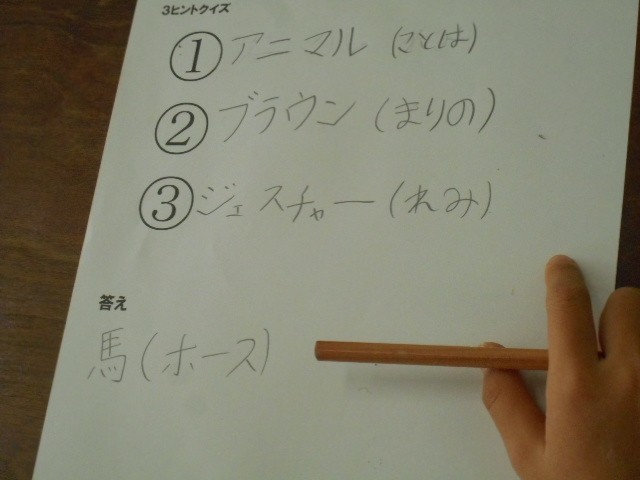 3ヒントクイズ
① アニマル (ことは)
② ブラウン (まりの)
③ ジェスチャー (れみ)
答え
馬 (ホース)